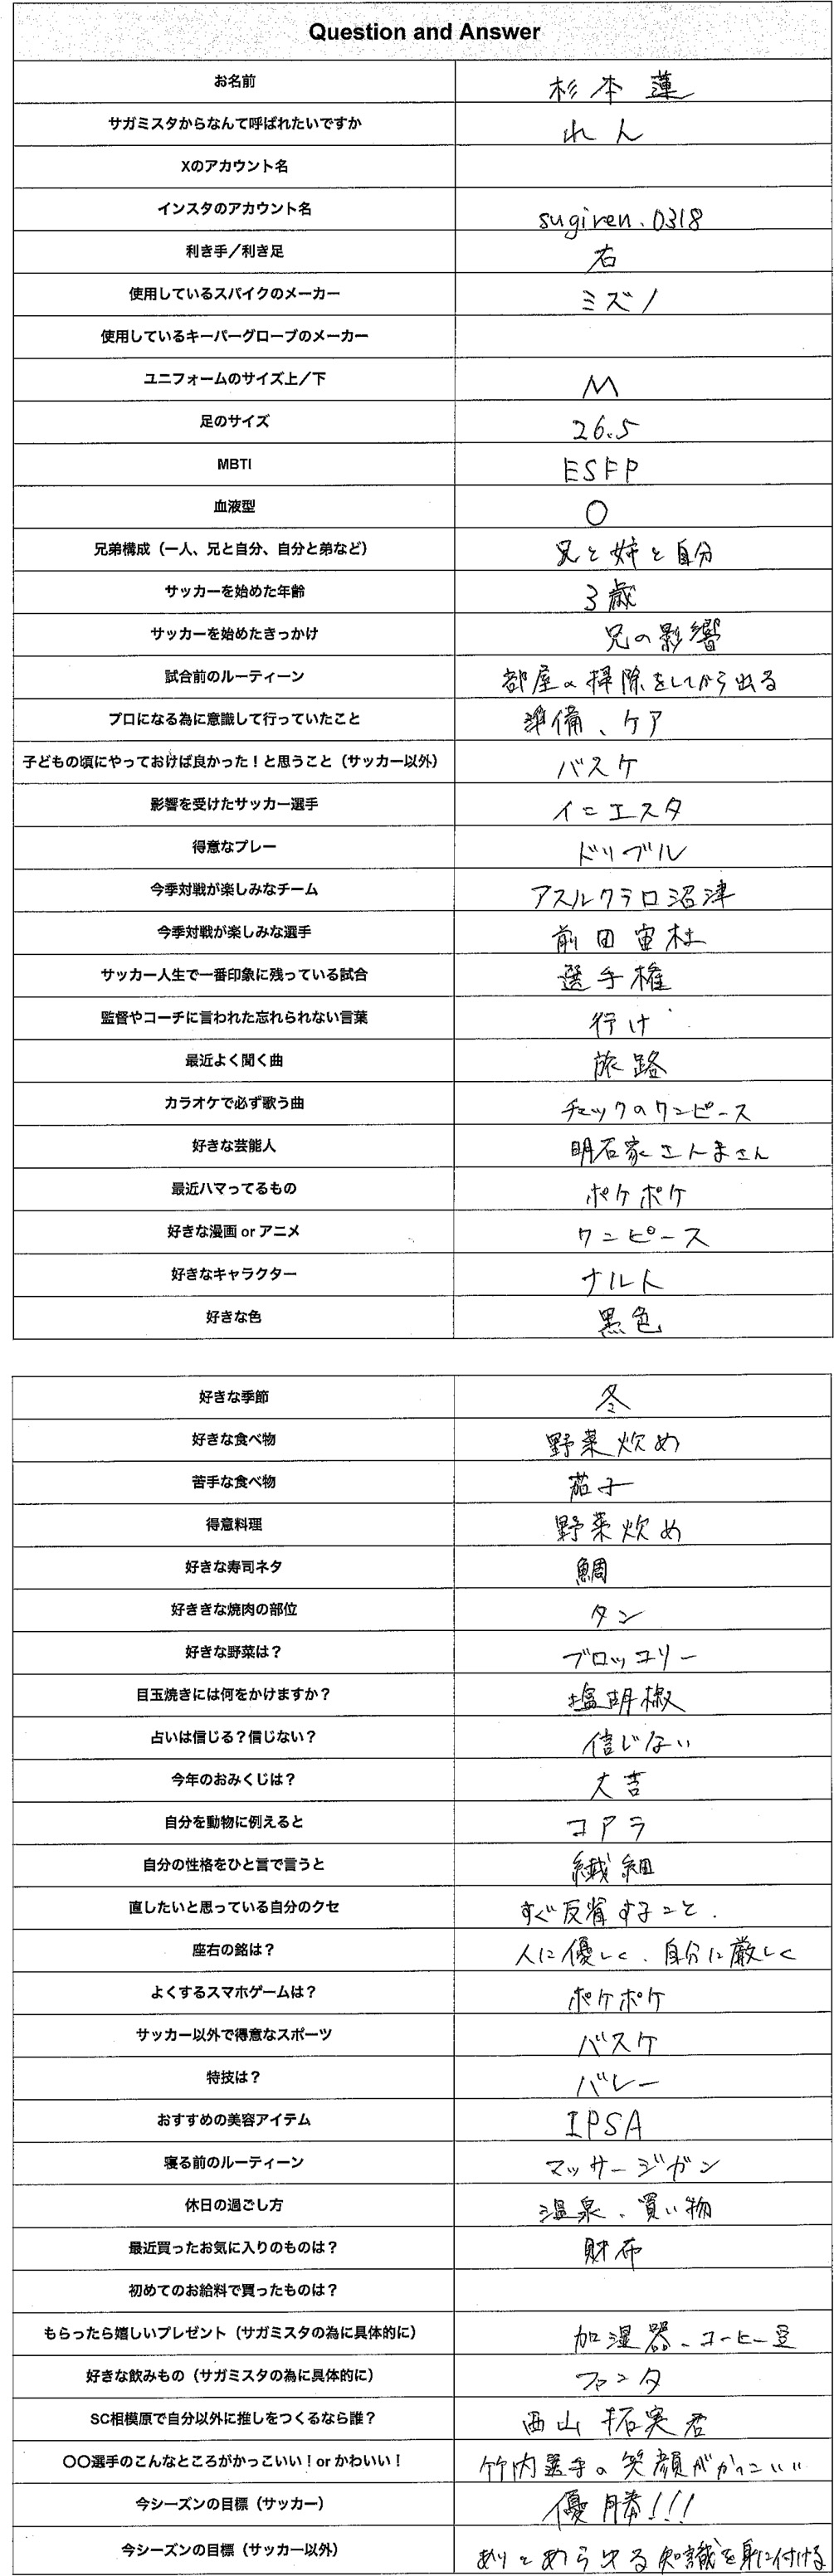 Question and Answer
お名前 杉本蓮
サガミスタからなんて呼ばれたいですか れん
Xのアカウント名
インスタのアカウント名 sugiren.0318
利き手／利き足 右
使用しているスパイクのメーカー ミズノ
使用しているキーパーグローブのメーカー
ユニフォームのサイズ上／下 M
足のサイズ 26.5
MBTI ESFP
血液型 O
兄弟構成（一人、兄と自分、自分と弟など） 兄と姉と自分
サッカーを始めた年齢 3歳
サッカーを始めたきっかけ 兄の影響
試合前のルーティーン 部屋の掃除をしてから出る
プロになる為に意識して行っていたこと 準備、ケア
子どもの頃にやっておけば良かった！と思うこと（サッカー以外） バスケ
影響を受けたサッカー選手 イニエスタ
得意なプレー ドリブル
今季対戦が楽しみなチーム アスルクラロ沼津
今季対戦が楽しみな選手 前田宙杜
サッカー人生で一番印象に残っている試合 選手権
監督やコーチに言われた忘れられない言葉 行け
最近よく聞く曲 旅路
カラオケで必ず歌う曲 チェックのワンピース
好きな芸能人 明石家さんまさん
最近ハマってるもの ポケポケ
好きな漫画 or アニメ ワンピース
好きなキャラクター ナルト
好きな色 黒色
好きな季節 冬
好きな食べ物 野菜炒め
苦手な食べ物 茄子
得意料理 野菜炒め
好きな寿司ネタ 鯛
好ききな焼肉の部位 タン
好きな野菜は？ ブロッコリー
目玉焼きには何をかけますか？ 塩胡椒
占いは信じる？信じない？ 信じない
今年のおみくじは？ 大吉
自分を動物に例えると コアラ
自分の性格をひと言で言うと 繊細
直したいと思っている自分のクセ すぐ反省すること.
座右の銘は？ 人に優しく、自分に厳しく
よくするスマホゲームは？ ポケポケ
サッカー以外で得意なスポーツ バスケ
特技は？ バレー
おすすめの美容アイテム IPSA
寝る前のルーティーン マッサージガン
休日の過ごし方 温泉、買い物
最近買ったお気に入りのものは？ 財布
初めてのお給料で買ったものは？
もらったら嬉しいプレゼント（サガミスタの為に具体的に） 加湿器、コーヒー豆
好きな飲みもの（サガミスタの為に具体的に） ファンタ
SC相模原で自分以外に推しをつくるなら誰？ 西山拓実君
〇〇選手のこんなところがかっこいい！or かわいい！ 竹内選手の笑顔がかっこいい
今シーズンの目標（サッカー） 優勝!!!
今シーズンの目標（サッカー以外） ありとあらゆる知識を身に付ける